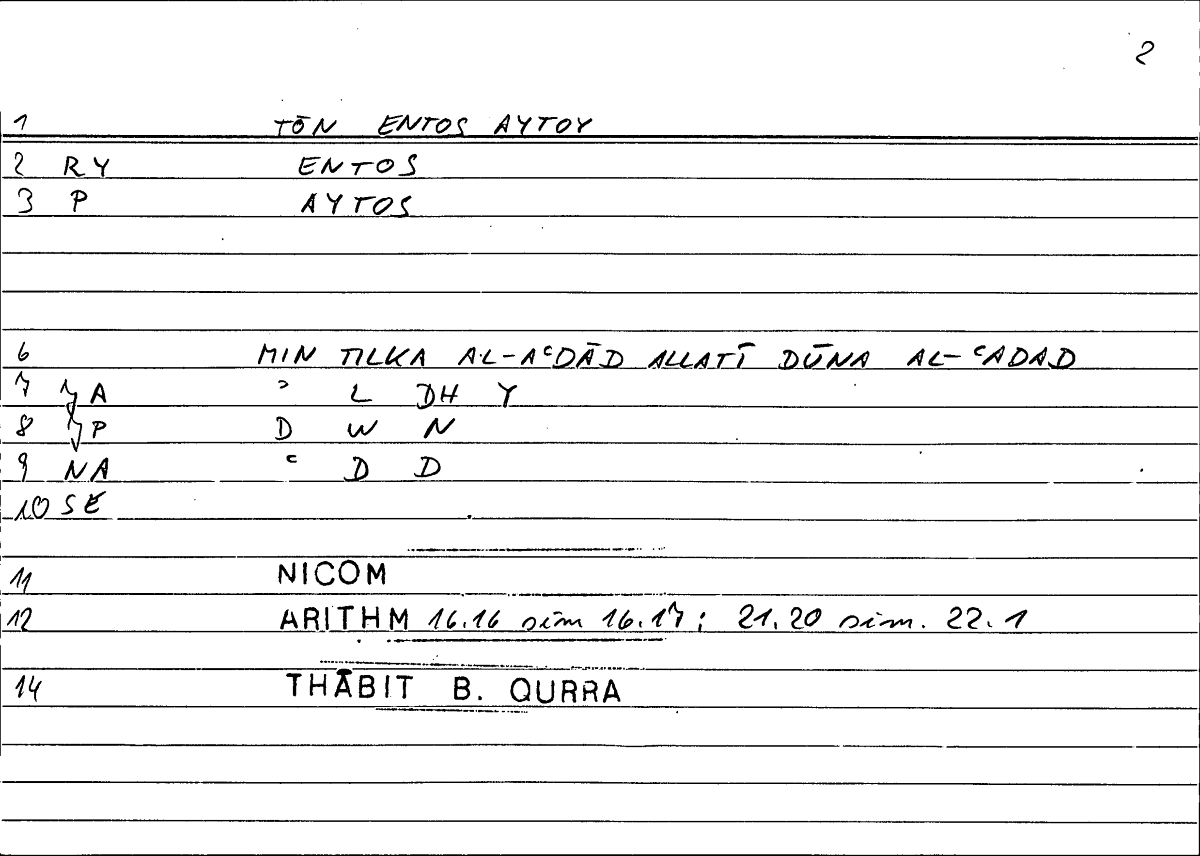 2
1 TŌN ENTOS AYTOY
2 RY ENTOS
3 P AYTOS
6 MIN TILKA AL-AᶜDĀD ALLATĪ DŪNA AL-ᶜADAD
7 A ᵓ L DH Y
8 P D W N
9 NA ᶜ D D
10 SE
11 NICOM
12 ARITHM 16.16 sim 16.17; 21.20 sim. 22.1
14 THĀBIT B. QURRA